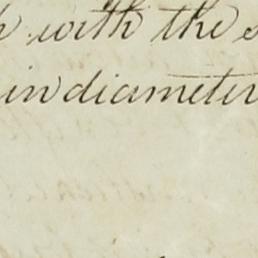 with the
in diameter